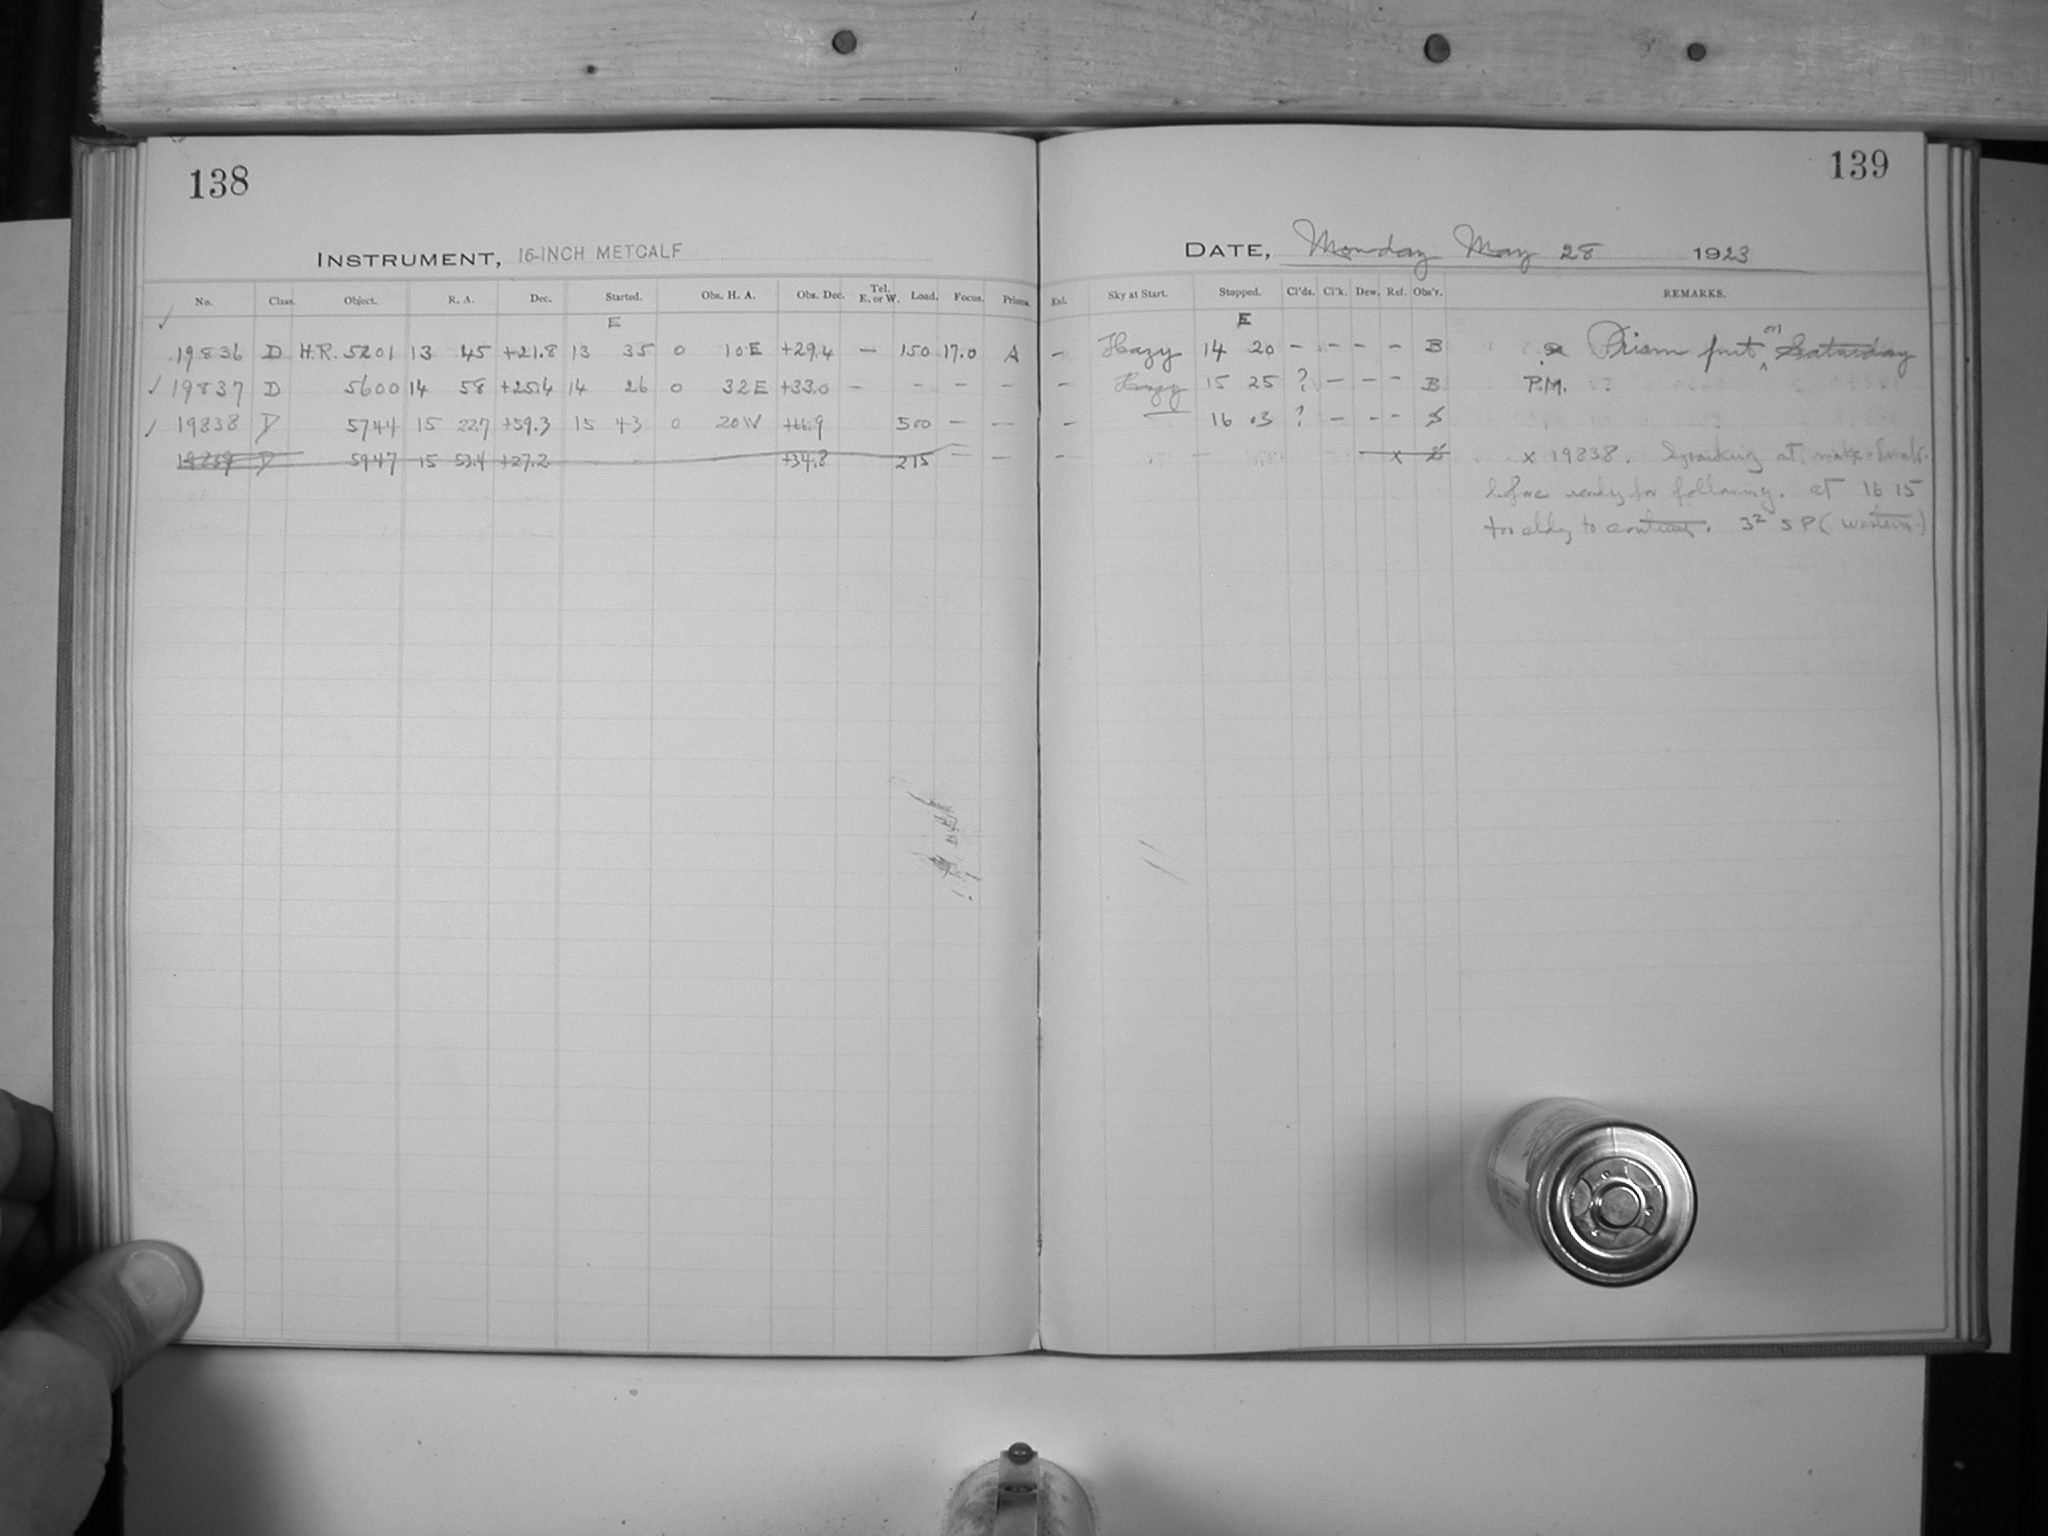 138
INSTRUMENT, 16-INCH METCALF
No. Class. Object. R. A. Dec. Started. Obs. H. A. Obs. Dec. Tel. E. or W. Load. Focus. Prisms.
E
19836 D H.R. 5201 13 45 +21.8 13 35 0 10E +29.4 — 150 17.0 A
✓ 19837 D 5600 14 58 +25.4 14 26 0 32E +33.0 — – – –
✓ 19838 D 5744 15 22.7 +59.3 15 43 0 20W +66.9 500 – –
19839 D 5947 15 53.4 +27.2 +34.8 215 – –
139
DATE, Monday May 28 1923
Exl. Sky at Start. Stopped. Cl'ds. Cl'k. Dew. Ref. Obs'r. REMARKS.
E
– Hazy 14 20 – – – – B Prism put on Saturday
– Hazy 15 25 ? – – – B P.M.
– — 16 03 ? – – – S
– x x 19838. Sparking at make-break
before ready for following. at 16 15
too cldy to 3² S P (Western)